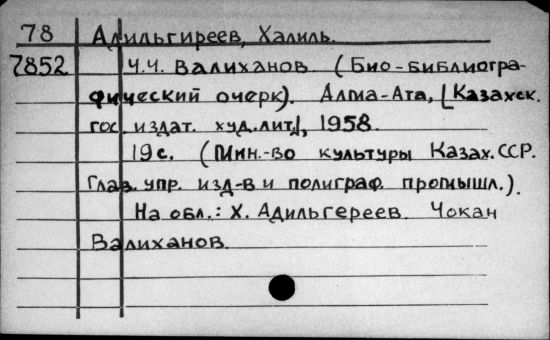 78 Адильгиреев, Халиль.
7852 Ч.Ч. Валиханов (Био-библиогра-
фический очерк). Алма-Ата, [Казахск.
гос. издат. худ.лит.], 1958.
19с. (Мин.-во культуры Казах.ССР.
Глав. упр. изд-в и полиграф. промышл.).
На обл.: Х. Адильгереев. Чокан
Валиханов.